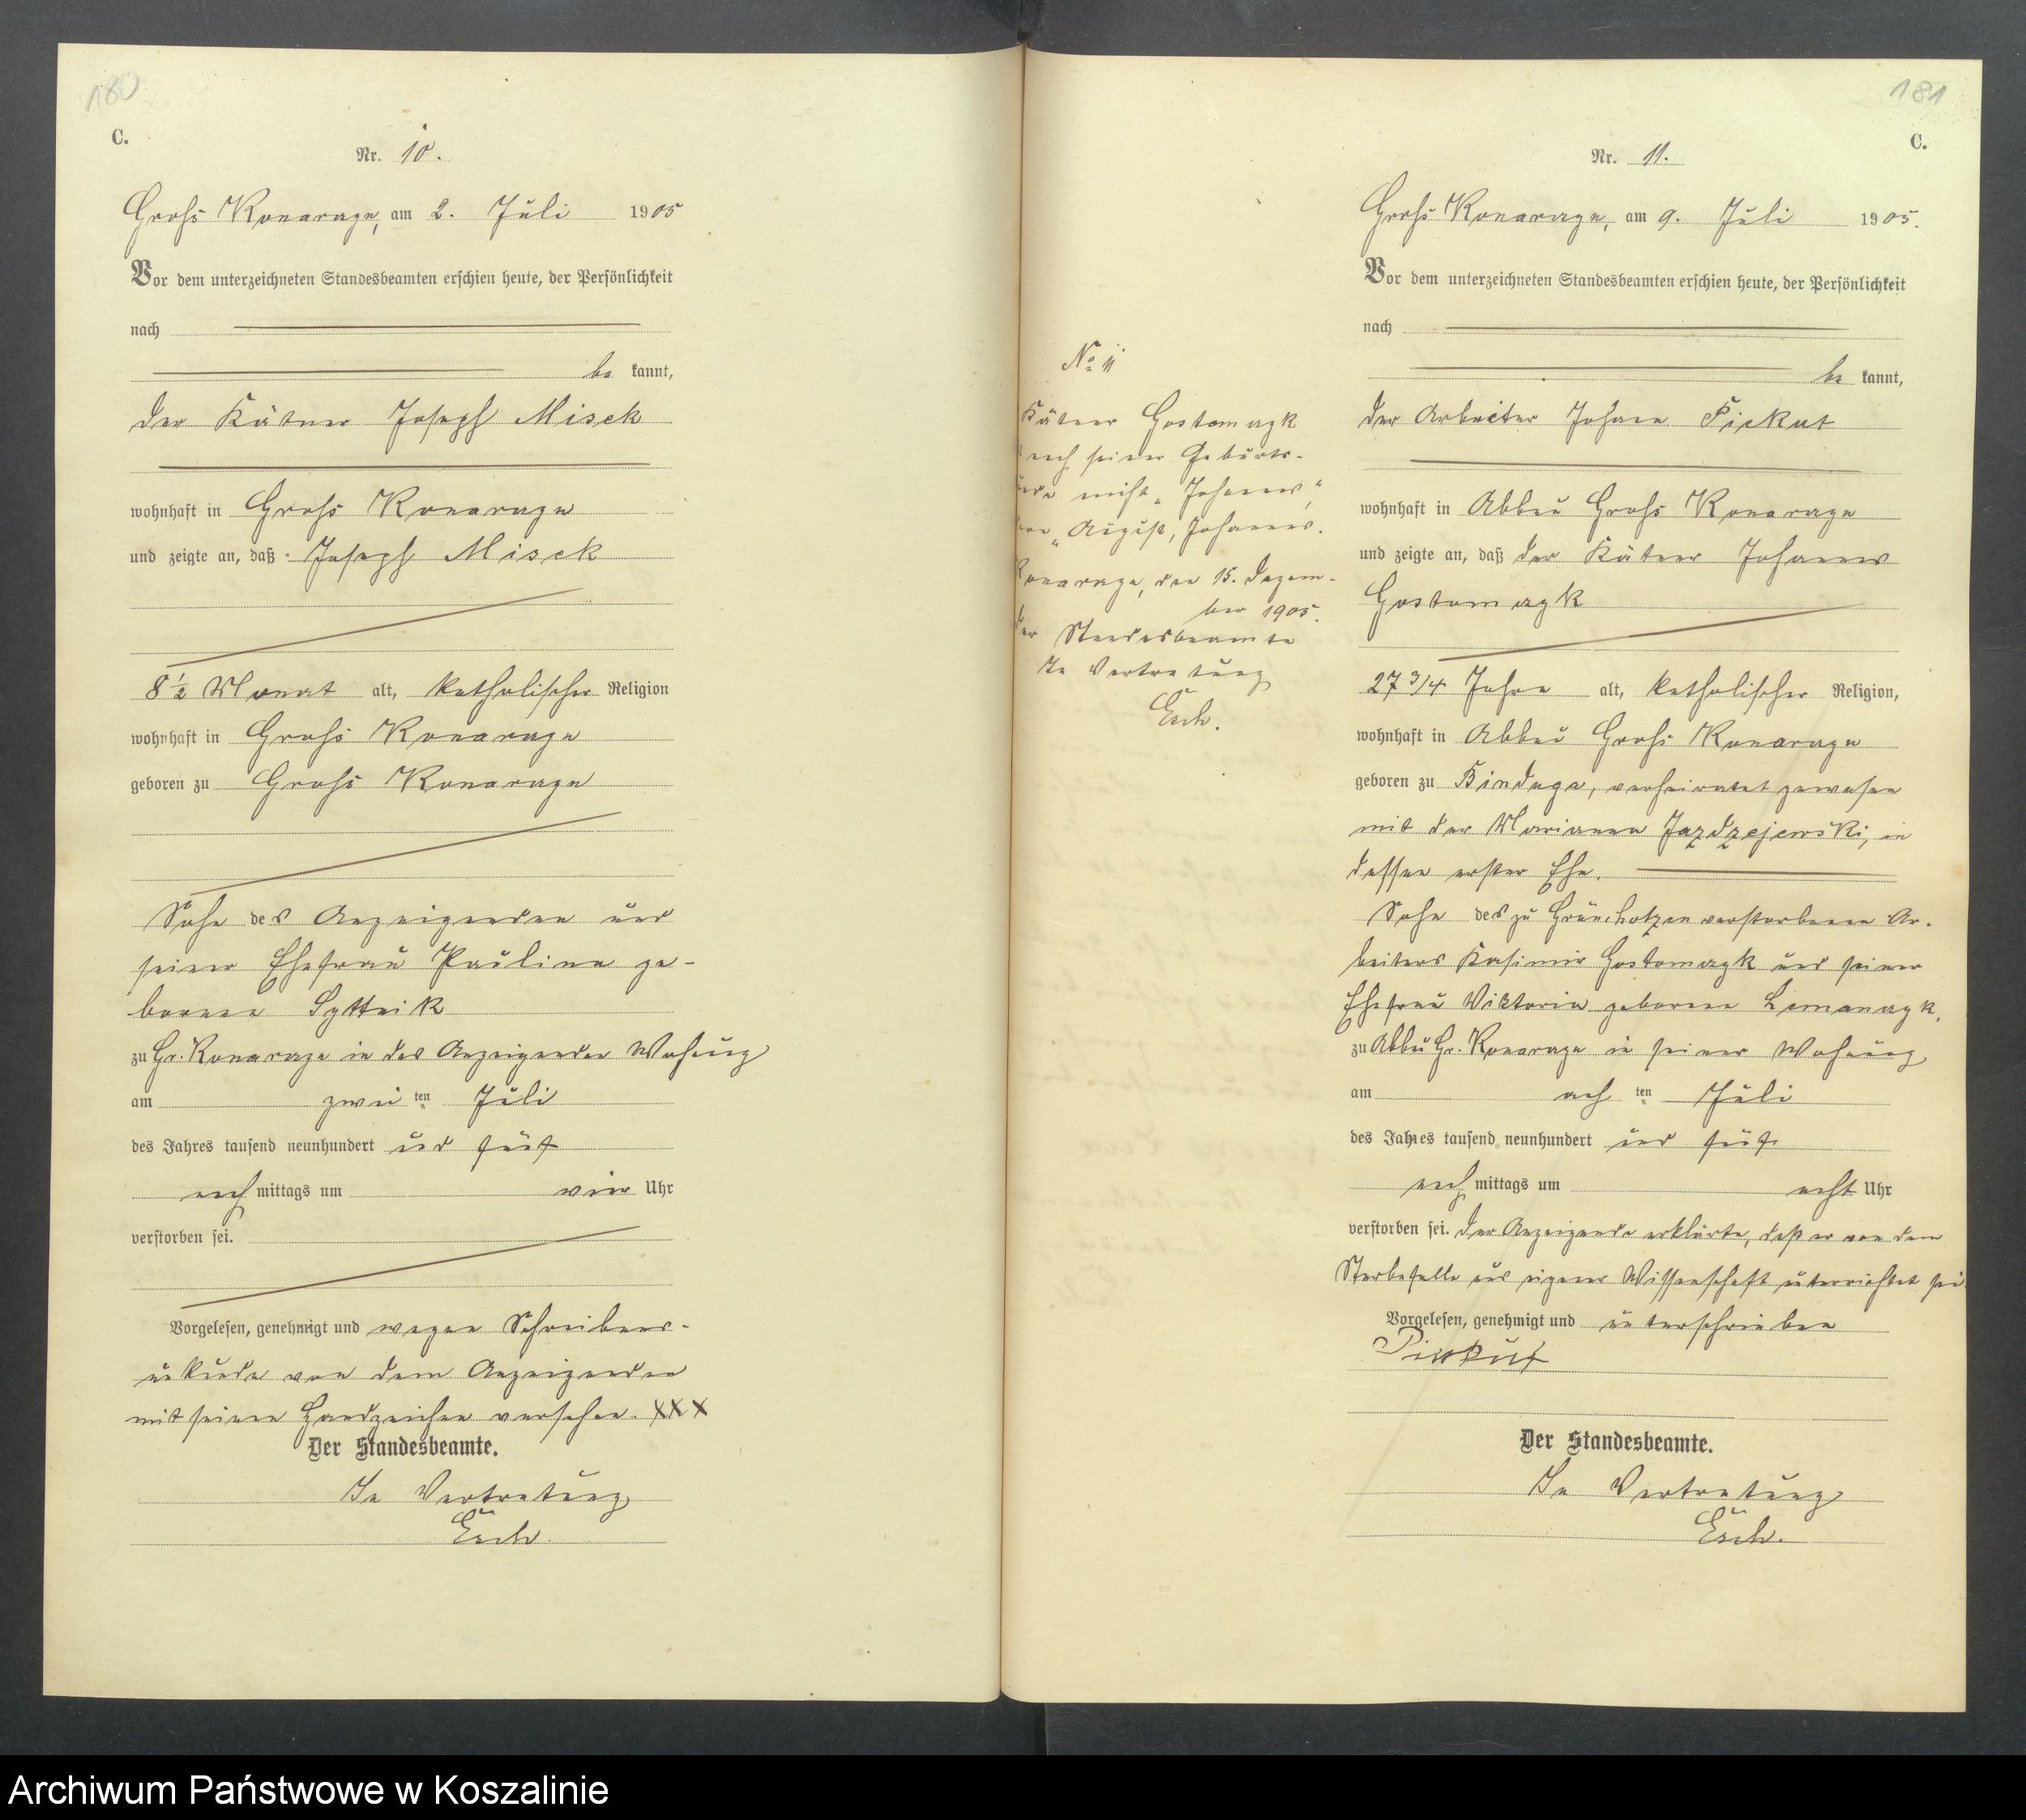 180
C.
Nr. 10.
Groß Konarzyn, am 2. Juli 1905
Vor dem unterzeichneten Standesbeamten erschien heute, der Persönlichkeit
nach
be kannt,
der Kätner Joseph Misek
wohnhaft in Groß Konarzyn
und zeigte an, daß Joseph Misek
8 1/2 Monat alt, katholischer Religion
wohnhaft in Groß Konarzyn
geboren zu Groß Konarzyn
Sohn des Anzeigenden und
seiner Ehefrau Pauline ge-
borenen
zu Gr. Konarzyn in des Anzeigenden Wohnung
am zwei ten Juli
des Jahres tausend neunhundert und fünf
nach mittags um vier Uhr
verstorben sei.
Vorgelesen, genehmigt und wegen Schreibens-
unkunde von dem Anzeigenden
mit seinem Handzeichen versehen. XXX
Der Standesbeamte.
In Vertretung
Esch.
No 11
Kätner Gostomzyk
nach seiner Geburts-
nicht "Johannes",
"August, Johannes.
Konarzyn, den 15. Dezem-
ber 1905.
Der Standesbeamte
In Vertretung
Esch.
181
C.
Nr. 11.
Groß Konarzyn, am 9. Juli 1905.
Vor dem unterzeichneten Standesbeamten erschien heute, der Persönlichkeit
nach
be kannt,
der Arbeiter Johann Piekut
wohnhaft in Abbau Groß Konarzyn
und zeigte an, daß der Kätner Johannes
Gostomzyk
27 3/4 Jahre alt, katholischer Religion,
wohnhaft in Abbau Groß Konarzyn
geboren zu Binduga, verheiratet gewesen
mit der Marianna Jazdzejewski, in
dessen erster Ehe.
Sohn des zu Grünchotzen verstorbenen Ar-
beiters Kasimir Gostomzyk und seiner
Ehefrau Viktoria geborene Lemanzyk,
zu Abbau Gr. Konarzyn in seiner Wohnung
am ach ten Juli
des Jahres tausend neunhundert und fünf
nach mittags um acht Uhr
verstorben sei. Der Anzeigende erklärte, daß er von dem
Sterbefalle aus eigener Wissenschaft unterrichtet sei.
Vorgelesen, genehmigt und unterschrieben
Piekut
Der Standesbeamte.
In Vertretung
Esch.
Archiwum Państwowe w Koszalinie